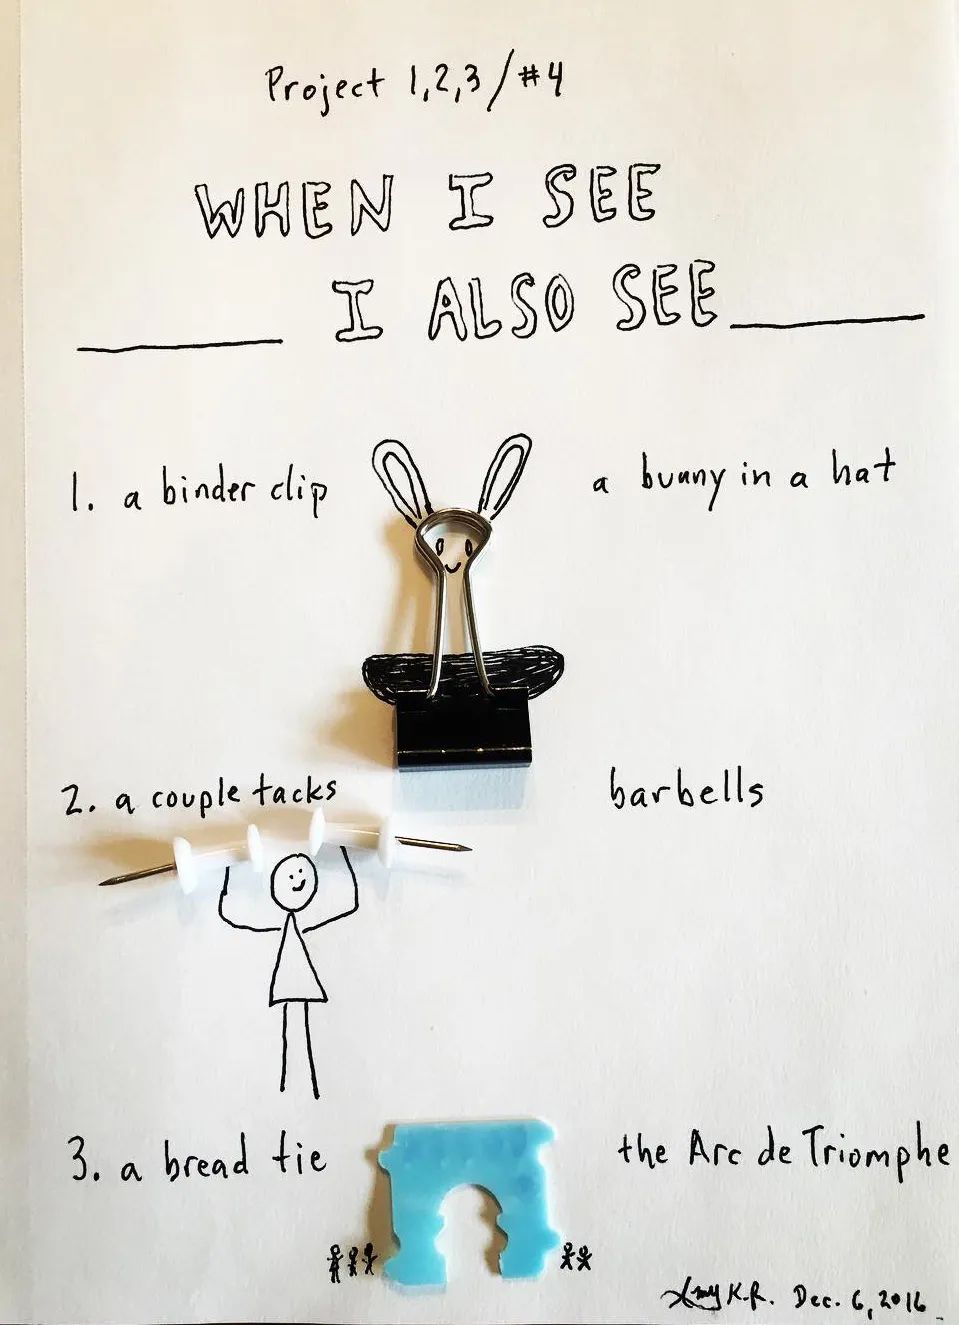 Project 1,2,3/#4
WHEN I SEE
______ I ALSO SEE______
1. a binder clip a bunny in a hat
2. a couple tacks barbells
3. a bread tie the Arc de Triomphe
Amy K.R. Dec. 6, 2016